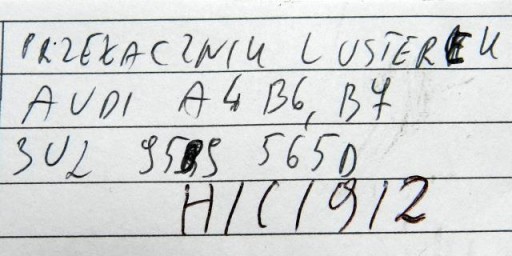 PRZEŁACZNIK LUSTEREK
AUDI A4 B6, B7
3U2 959 565D
H/C/9/2